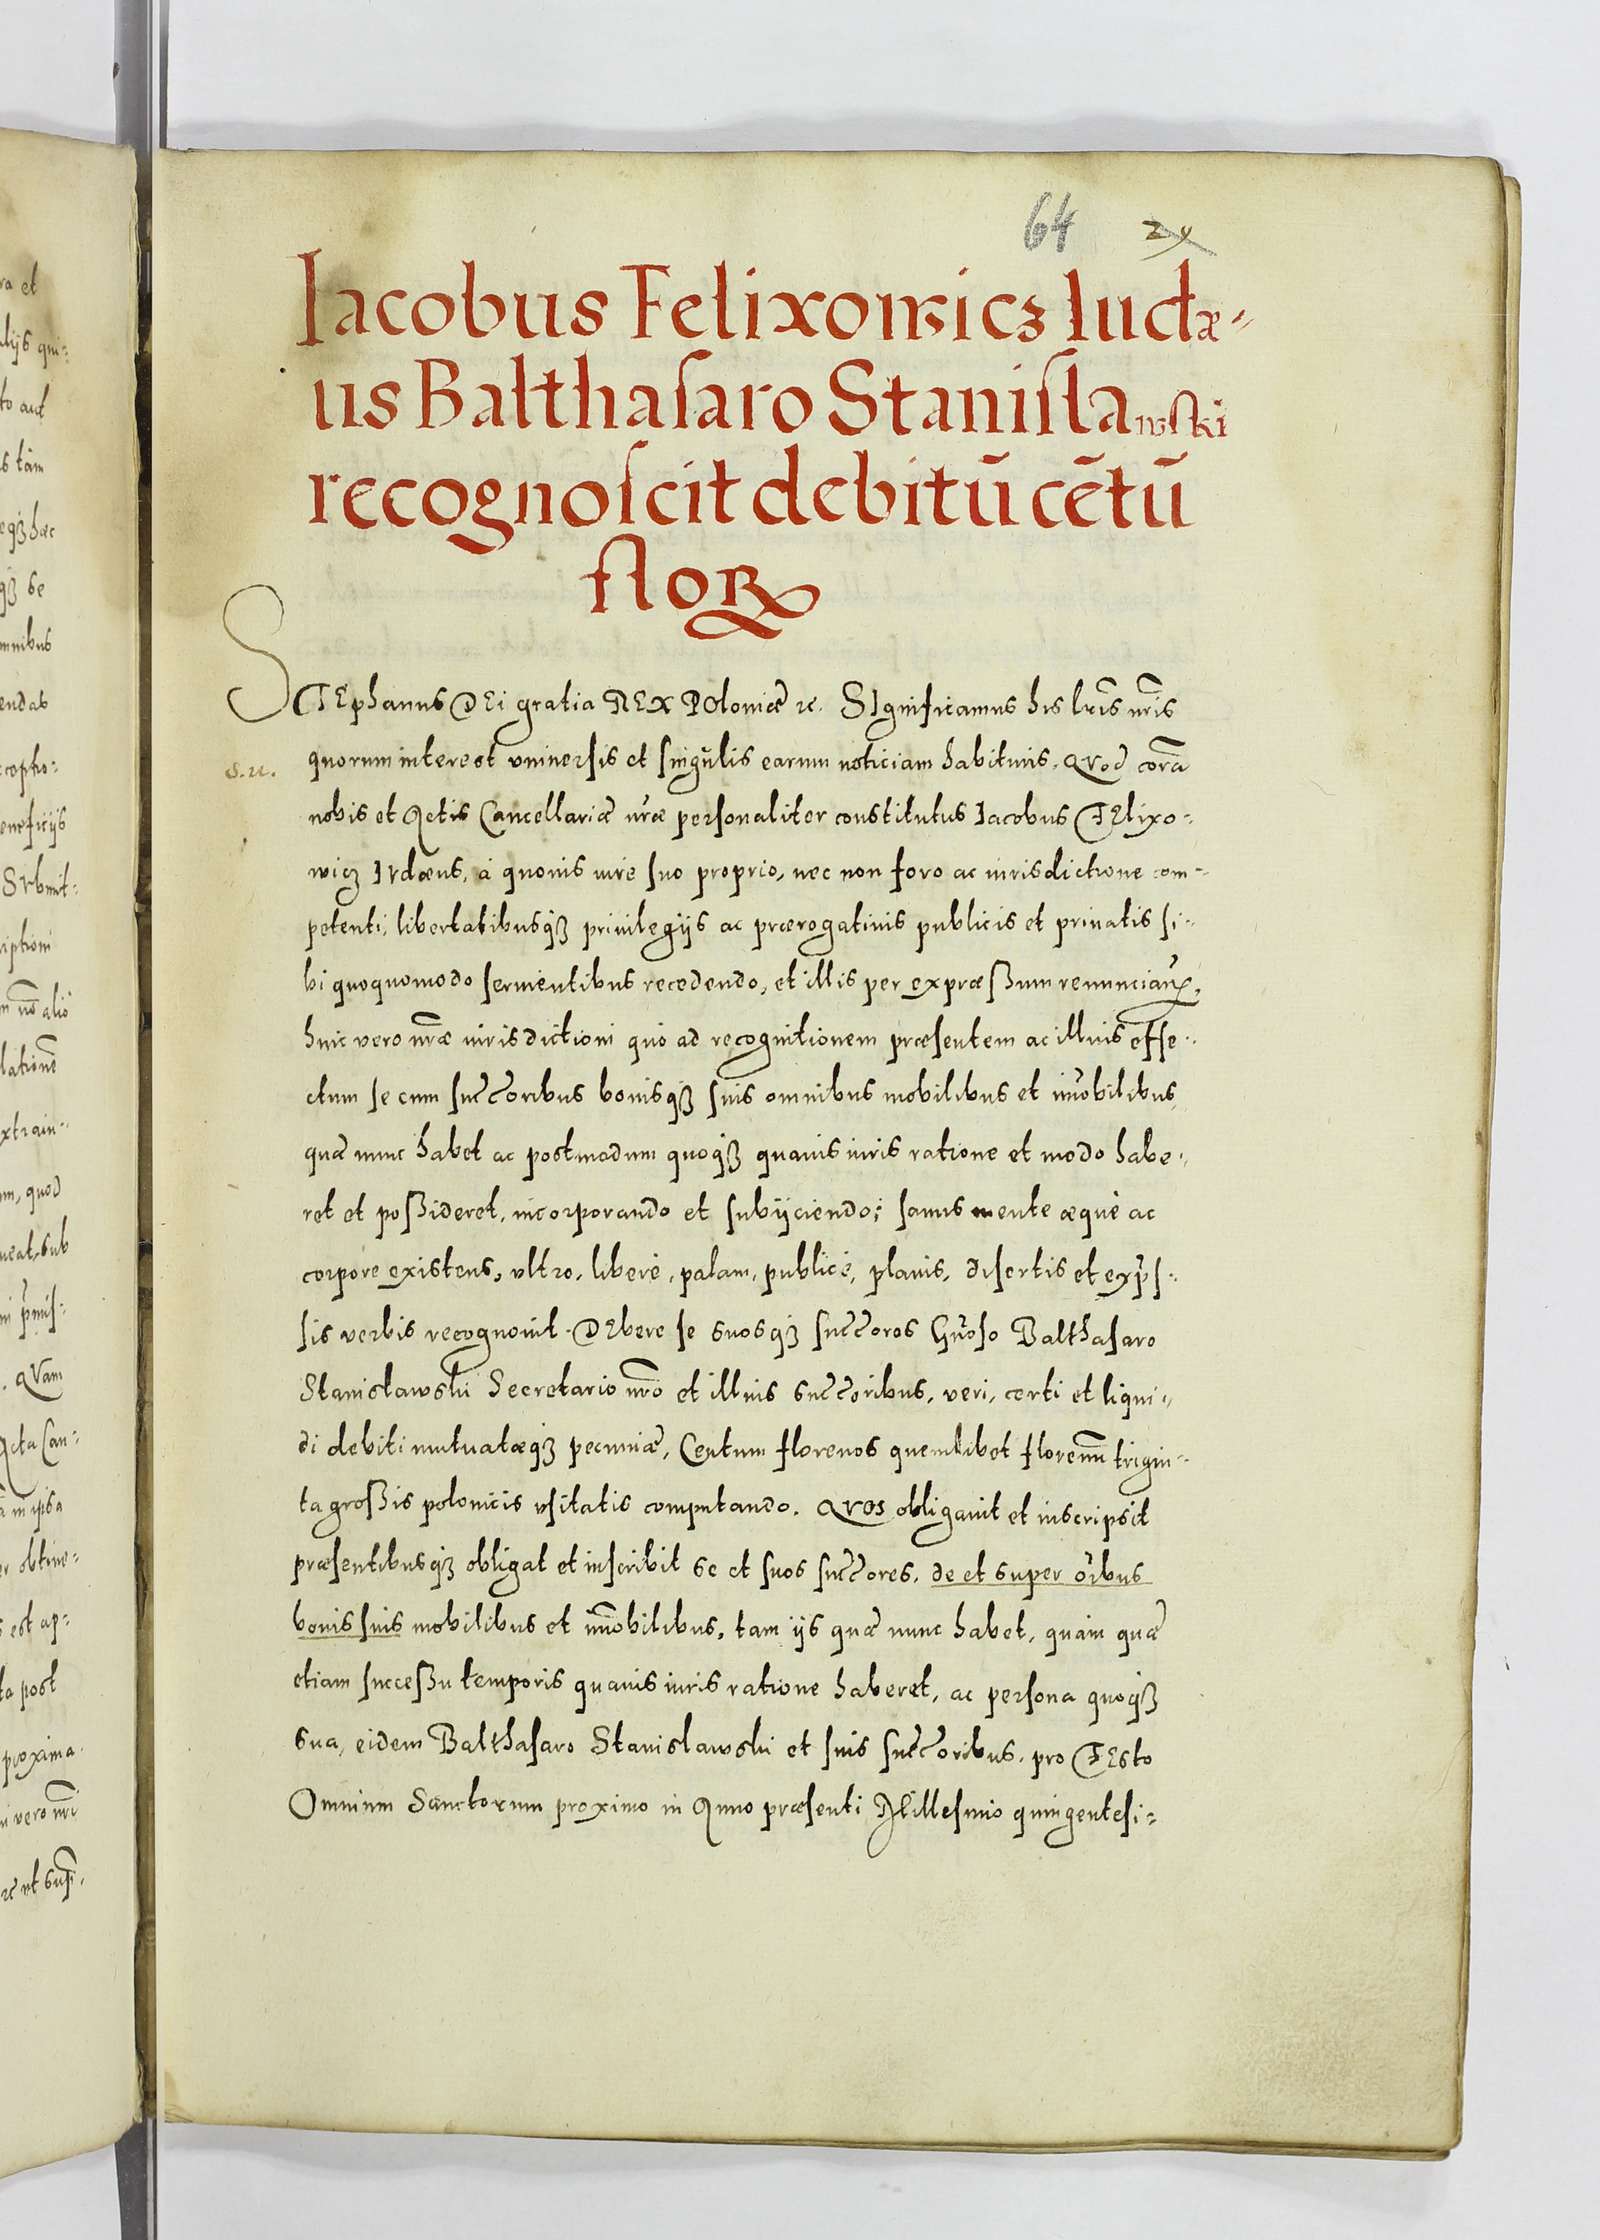 64 24
Iacobus Felixowicz Iudæ-
us Balthasaro Stanislawski
recognoscit debitū cētū
florꝝ
STEphanus DEi gratia REX POloniæ etc. SIgnificamus his lr̃is nr̃is
s. n. quorum interest vniuersis et singulis earum noticiam habituris. QVod corã
nobis et Actis Cancellariæ nr̃æ personaliter constitutus Iacobus FElixo-
wicz IVdæus, à quouis iure suo proprio, nec non foro ac iurisdictione com-
petenti, libertatibusq̃ priuilegijs ac prærogatiuis publicis et priuatis si-
bi quoquomodo seruientibus recedendo, et illis per expræßum renuncian̄.
huic vero nr̃æ iurisdictioni quo ad recognitionem præsentem ac illius effe-
ctum se cum succ̃oribus bonisq̃ suis omnibus mobilibus et im̃obilibus,
quæ nunc habet ac postmodum quoq̃ quauis iuris ratione et modo habe-
ret et poßideret, incorporando et subijciendo; sanus mente æquè ac
corpore existens, vltro, liberè, palam, publicè, planis, disertis et exp̃s-
sis verbis recognouit. DEbere se suosq̃ succ̃ores Gñoso Balthasaro
Stanisławski Secretario nr̃o et illius succ̃oribus, veri, certi et liqui-
di debiti mutuatæq̃ pecuniæ, Centum florenos quemlibet florenum trigin-
ta großis polonicis vsitatis computando. QVos obligauit et inscripsit
præsentibusq̃ obligat et inscribit se et suos succ̃ores, de et super oĩbus
bonis suis mobilibus et im̃obilibus, tam ijs quæ nunc habet, quàm quæ
etiam succeßu temporis quauis iuris ratione haberet, ac persona quoq̃
sua, eidem Balthasaro Stanislawski et suis succ̃oribus, pro FEsto
Omnium Sanctorum proximo in Anno præsenti Millesimo quingentesi-